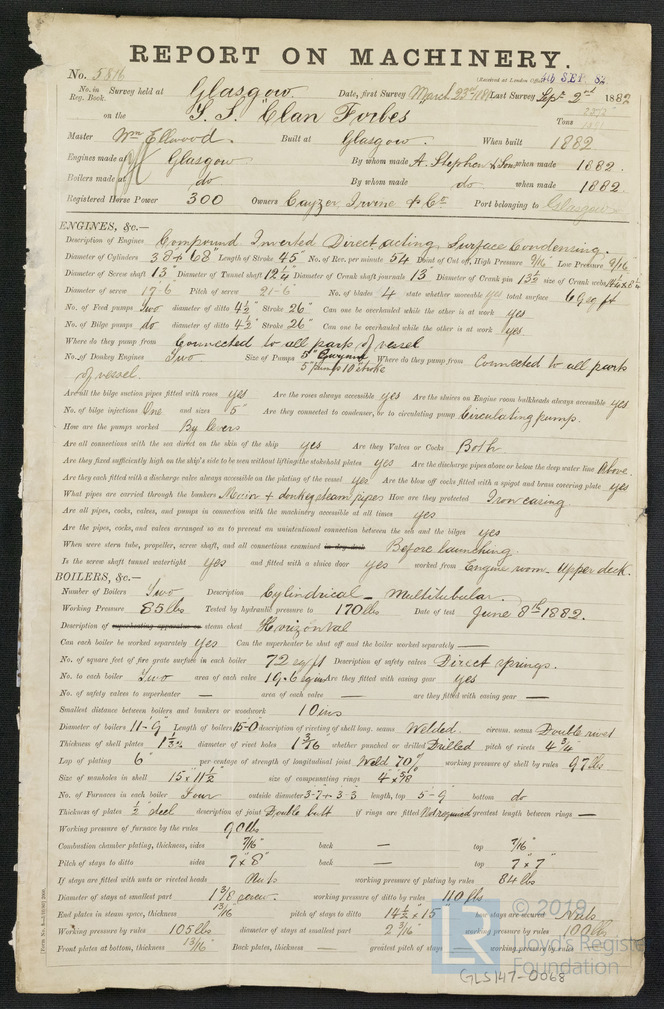 REPORT ON MACHINERY.
No. 5816 (Received at London Office 4th SEP 82
No. in Reg. Book. Survey held at Glasgow Date, first Survey March 23rd 1881 Last Survey Sept 2nd 1882
on the T. S. "Clan Forbes Tons
Master Wm Ellwood. Built at Glasgow. When built 1882
Engines made at Glasgow By whom made A. Stephen & Sons when made 1882.
Boilers made at do By whom made do. when made 1882.
Registered Horse Power 300 Owners Cayzer, Irvine & Co Port belonging to Glasgow
ENGINES, &c.—
Description of Engines Compound Inverted Direct acting, Surface Condensing.
Diameter of Cylinders 38 + 68" Length of Stroke 45" No. of Rev. per minute 54 Point of Cut off, High Pressure 9/16 Low Pressure 9/16
Diameter of Screw shaft 13" Diameter of Tunnel shaft 12¼ Diameter of Crank shaft journals 13" Diameter of Crank pin 13½ size of Crank webs
Diameter of screw 17-6" Pitch of screw 21-6" No. of blades 4 state whether moveable yes total surface 69 sq ft
No. of Feed pumps Two diameter of ditto 4½" Stroke 26" Can one be overhauled while the other is at work yes
No. of Bilge pumps do diameter of ditto 4½" Stroke 26" Can one be overhauled while the other is at work yes
Where do they pump from Connected to all parts of vessel
No. of Donkey Engines Two Size of Pumps 5" Gwynne 5" pumps 10" stroke Where do they pump from Connected to all parts
of vessel.
Are all the bilge suction pipes fitted with roses yes Are the roses always accessible yes Are the sluices on Engine room bulkheads always accessible yes
No. of bilge injections One and sizes 5" Are they connected to condenser, or to circulating pump Circulating pump.
How are the pumps worked By levers
Are all connections with the sea direct on the skin of the ship yes Are they Valves or Cocks Both
Are they fixed sufficiently high on the ship's side to be seen without lifting the stokehold plates yes Are the discharge pipes above or below the deep water line Above.
Are they each fitted with a discharge valve always accessible on the plating of the vessel yes Are the blow off cocks fitted with a spigot and brass covering plate yes
What pipes are carried through the bunkers Main + donkey steam pipes How are they protected Iron casing.
Are all pipes, cocks, valves, and pumps in connection with the machinery accessible at all times yes
Are the pipes, cocks, and valves arranged so as to prevent an unintentional connection between the sea and the bilges yes
When were stern tube, propeller, screw shaft, and all connections examined in dry dock Before launching.
Is the screw shaft tunnel watertight yes and fitted with a sluice door yes worked from Engine room. Upper deck.
BOILERS, &c.—
Number of Boilers Two Description Cylindrical - Multitubular.
Working Pressure 85 lbs Tested by hydraulic pressure to 170 lbs Date of test June 8th 1882.
Description of superheating apparatus or steam chest Horizontal
Can each boiler be worked separately yes Can the superheater be shut off and the boiler worked separately —
No. of square feet of fire grate surface in each boiler 72 sq ft Description of safety valves Direct springs.
No. to each boiler Two area of each valve 19.6 sq ins Are they fitted with easing gear yes
No. of safety valves to superheater — area of each valve — are they fitted with easing gear —
Smallest distance between boilers and bunkers or woodwork 10 ins
Diameter of boilers 11-9" Length of boilers 15-0 description of riveting of shell long. seams Welded. circum. seams Double rivet
Thickness of shell plates 1 1/32" diameter of rivet holes 1 3/16 whether punched or drilled Drilled pitch of rivets 4¾"
Lap of plating 6" per centage of strength of longitudinal joint Weld 70% working pressure of shell by rules 97 lbs
Size of manholes in shell 15" x 11½" size of compensating rings 4" x 5/8"
No. of Furnaces in each Boiler Four outside diameter 3-7 + 3-3 length, top 5-9" bottom do
Thickness of plates ½" steel description of joint Double butt if rings are fitted Not required greatest length between rings —
Working pressure of furnace by the rules 90 lbs
Combustion chamber plating, thickness, sides 7/16" back — top 7/16"
Pitch of stays to ditto sides 7" x 8" back — top 7" x 7"
If stays are fitted with nuts or riveted heads Nuts working pressure of plating by rules 84 lbs
Diameter of stays at smallest part 1 3/8 working pressure of ditto by rules 110 lbs
End plates in steam space, thickness 13/16" pitch of stays to ditto 14½" x 15" how stays are secured Nuts
Working pressure by rules 105 lbs diameter of stays at smallest part 2 3/16" working pressure by rules 100 lbs
Front plates at bottom, thickness 13/16" Back plates, thickness — greatest pitch of stays — working pressure by rules
© 2019
LR Lloyd's Register
Foundation
GLS147-0068